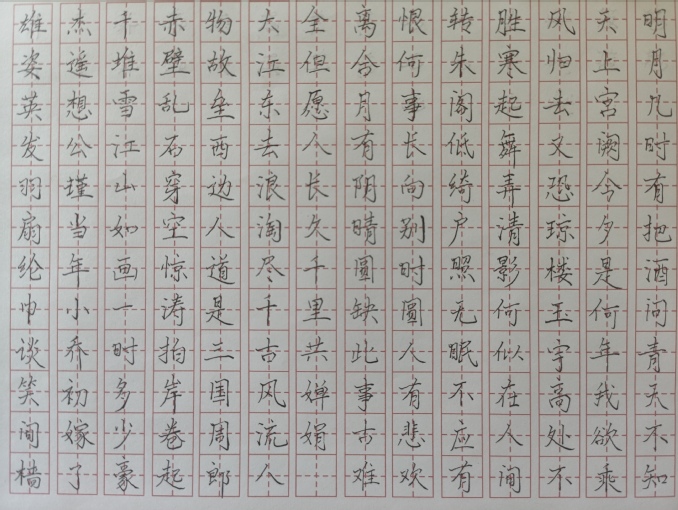 明月几时有把酒问青天不知
天上宫阙今夕是何年我欲乘
风归去又恐琼楼玉宇高处不
胜寒起舞弄清影何似在人间
转朱阁低绮户照无眠不应有
恨何事长向别时圆人有悲欢
离合月有阴晴圆缺此事古难
全但愿人长久千里共婵娟
大江东去浪淘尽千古风流人
物故垒西边人道是三国周郎
赤壁乱石穿空惊涛拍岸卷起
千堆雪江山如画一时多少豪
杰遥想公瑾当年小乔初嫁了
雄姿英发羽扇纶巾谈笑间樯